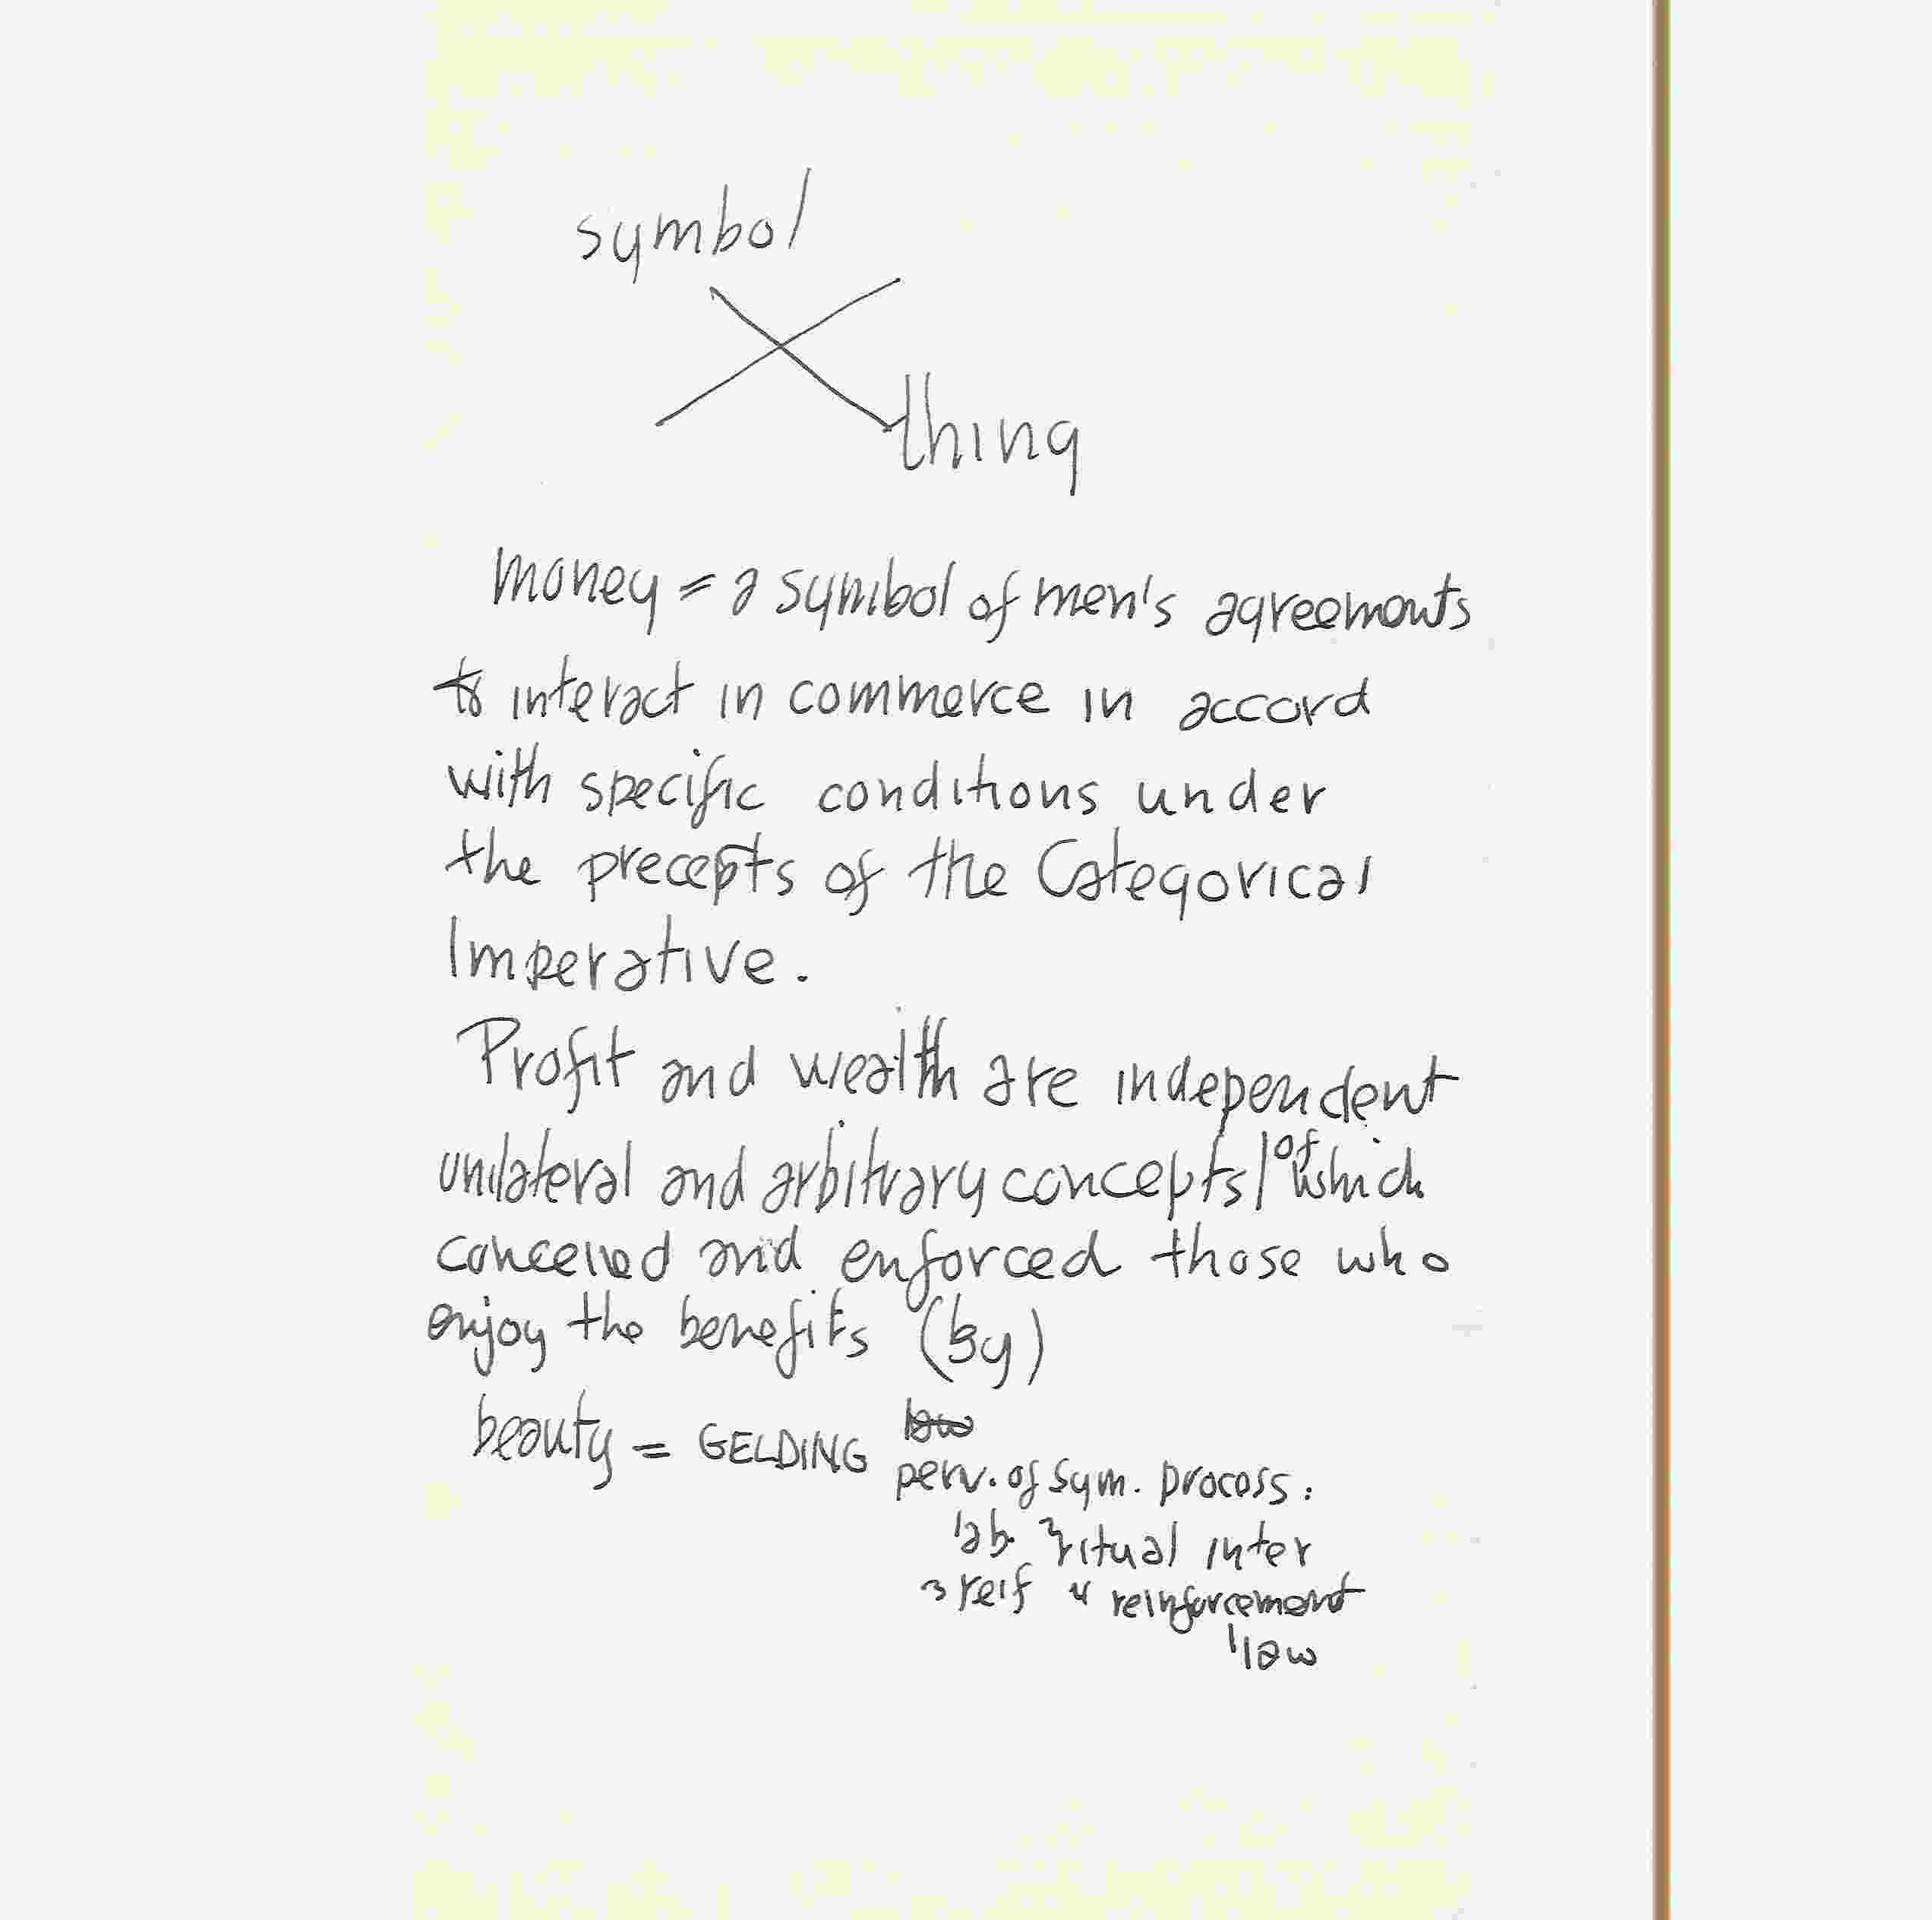 symbol
thing
money = a symbol of men's agreements
to interact in commerce in accord
with specific conditions under
the precepts of the Categorical
Imperative.
Profit and wealth are independent
unilateral and arbitrary concepts / of which
conceived and enforced those who
enjoy the benefits (by)
beauty = GELDING law
perv. of sym. process:
1 ab. 2 ritual inter
3 reif 4 reinforcement
law